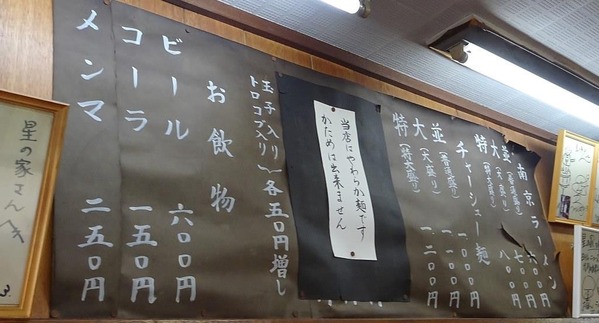 南京ラーメン
並(普通盛り)
大(大盛り) 八〇〇円
特大(特大盛り)
チャーシュー麺
並(普通盛り) 一〇〇〇円
大(大盛り) 一一〇〇円
特大(特大盛り) 一二〇〇円
当店はやわらか麺です
かためは出来ません
玉子入り
トロコブ入り〜各五〇円増し
お飲物
ビール 六〇〇円
コーラ 一五〇円
メンマ 二五〇円
星の家さんへ